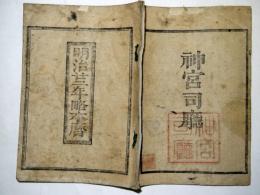 神宮司廳
明治廿三年略本暦